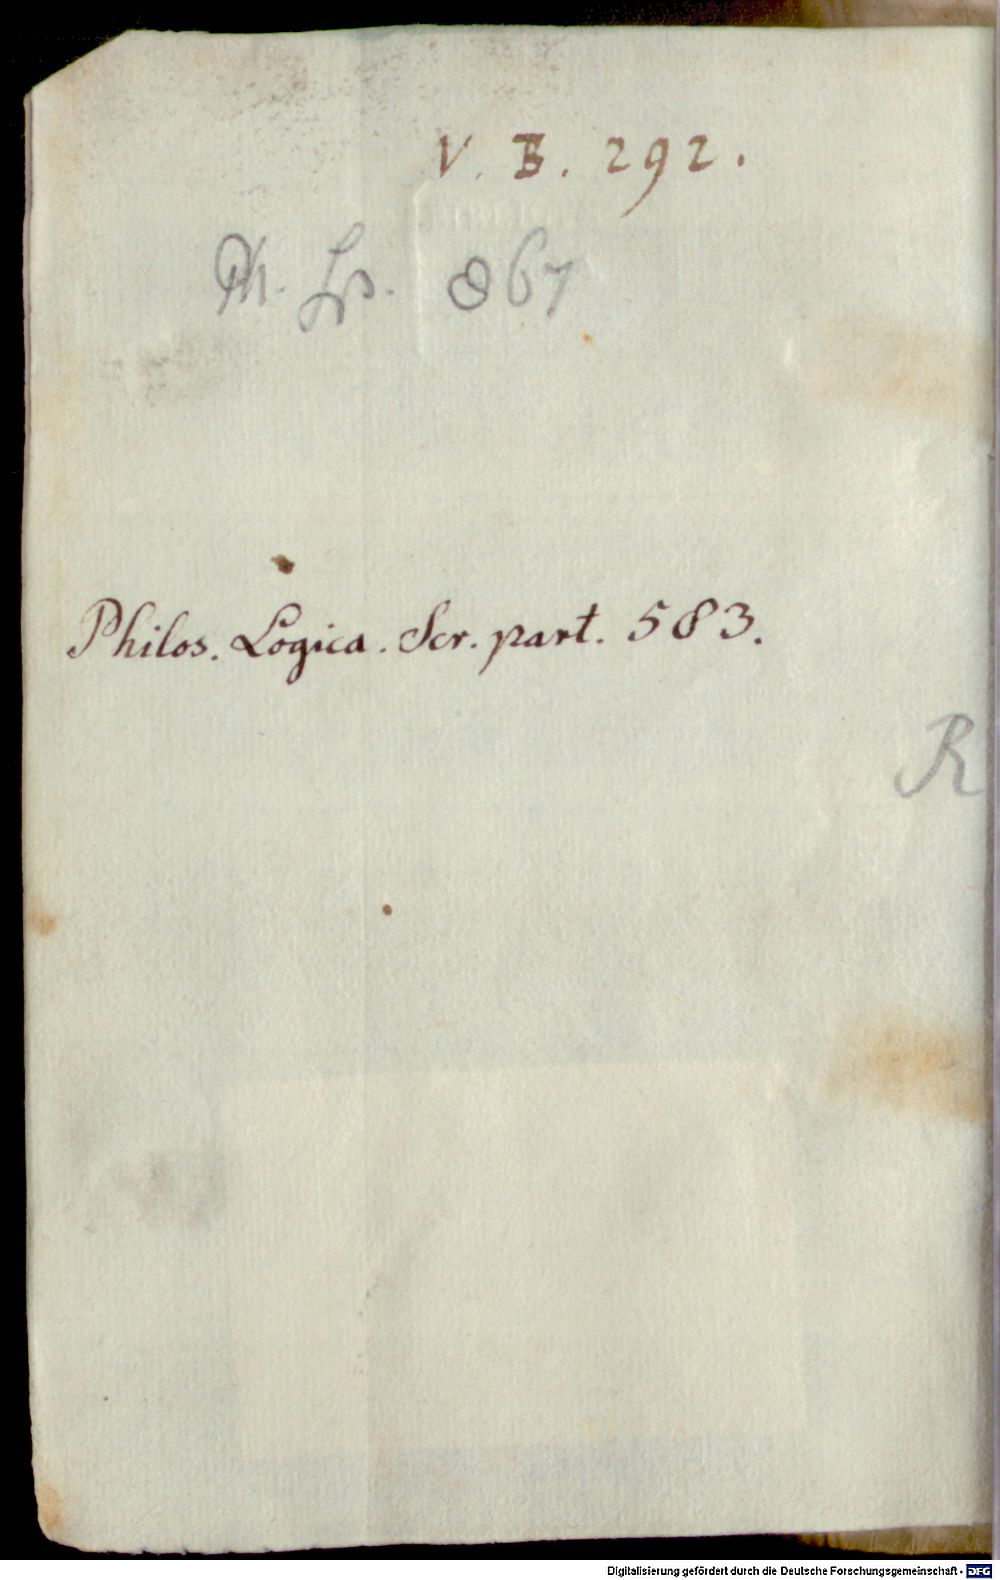 V. B. 292.
Ph. Sp. 867
Philos. Logica. Scr. part. 583.
R
Digitalisierung gefördert durch die Deutsche Forschungsgemeinschaft - DFG